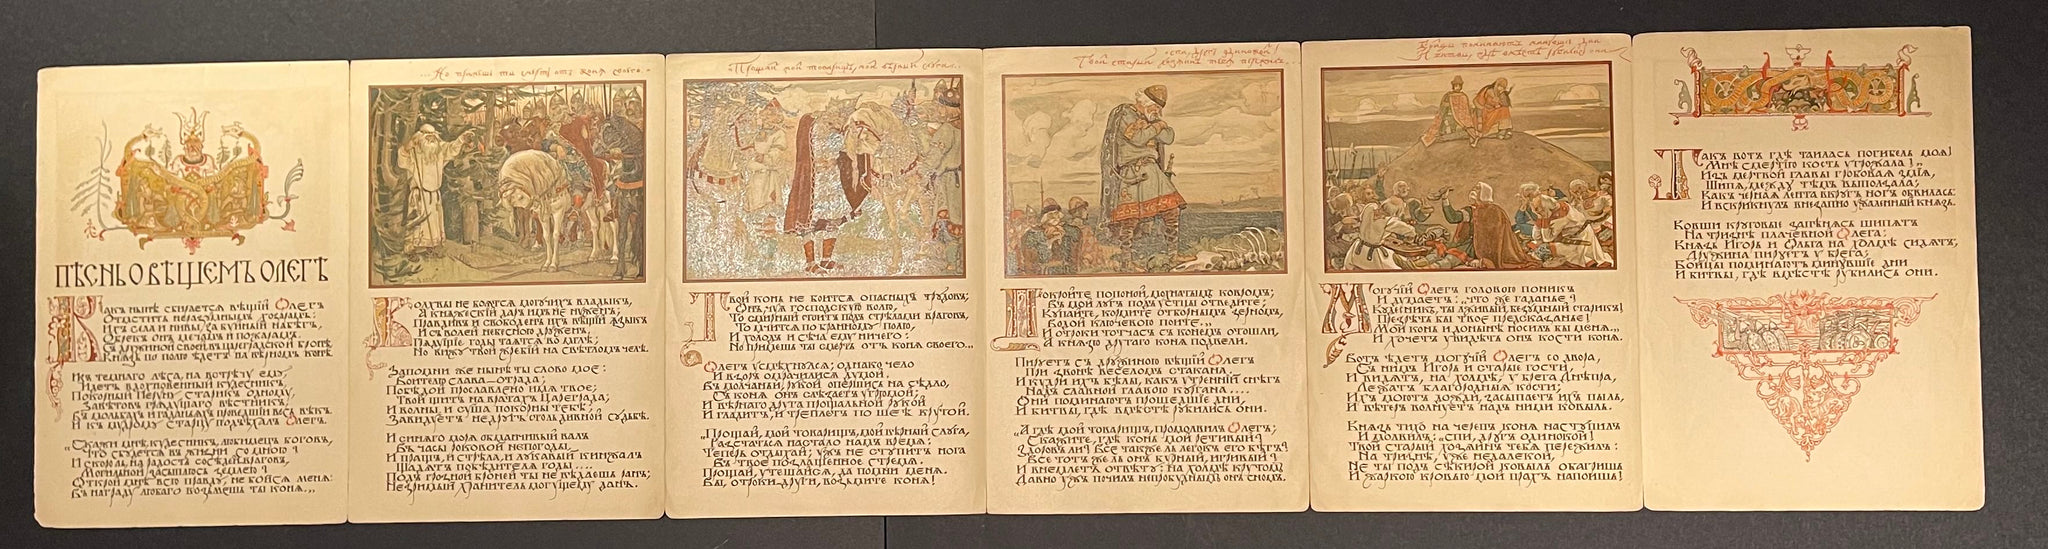 ПѢСНЬ О ВѢЩЕМЪ ОЛЕГѢ
Какъ нынѣ сбирается вѣщій Олегъ
Отмстить неразумнымъ хозарамъ:
Ихъ села и нивы, за буйный набѣгъ,
Обрекъ онъ мечамъ и пожарамъ.
Съ дружиной своей, въ цареградской бронѣ,
Князь по полю ѣдетъ на вѣрномъ конѣ.
Изъ темнаго лѣса, на встрѣчу ему,
Идетъ вдохновенный кудесникъ,
Покорный Перуну старикъ одному,
Завѣтовъ грядущаго вѣстникъ,
Въ мольбахъ и гаданьяхъ проведшій весь вѣкъ.
И къ мудрому старцу подъѣхалъ Олегъ.
"Скажи мнѣ, кудесникъ, любимецъ боговъ,
Что сбудется въ жизни со мною?
И скоро ль, на радость сосѣдей-враговъ,
Могильной засыплюсь землею?
Открой мнѣ всю правду, не бойся меня:
Въ награду любаго возьмешь ты коня..."
...Но примешь ты смерть отъ коня своего.
Волхвы не боятся могучихъ владыкъ,
А княжескій даръ имъ не нуженъ;
Правдивъ и свободенъ ихъ вѣщій языкъ
И съ волей небесною друженъ.
Грядущіе годы таятся во мглѣ;
Но вижу твой жребій на свѣтломъ челѣ.
Запомни же нынѣ ты слово мое:
Воителю слава—отрада;
Побѣдой прославлено имя твое;
Твой щитъ на вратахъ Цареграда;
И волны и суша покорны тебѣ;
Завидуетъ недругъ столь дивной судьбѣ.
И синяго моря обманчивый валъ
Въ часы роковой непогоды,
И пращъ, и стрѣла, и лукавый кинжалъ
Щадятъ побѣдителя годы....
Подъ грозной броней ты не вѣдаешь ранъ;
Незримый хранитель могущему данъ.
"Прощай мой товарищъ, мой вѣрный слуга...
Твой конь не боится опасныхъ трудовъ;
Онъ, чуя господскую волю,
То смирный стоитъ подъ стрѣлами враговъ,
То мчится по бранному полю,
И холодъ и сѣча ему ничего:
Но примешь ты смерть отъ коня своего...
Олегъ усмѣхнулся; однако чело
И взоръ омрачилися думой.
Въ молчаньи, рукой опершись на сѣдло,
Съ коня онъ слѣзаетъ угрюмой;
И вѣрнаго друга прощальной рукой
И гладитъ, и треплетъ по шеѣ крутой.
"Прощай, мой товарищъ, мой вѣрный слуга,
Разстаться настало намъ время:
Теперь отдыхай; ужъ не ступитъ нога
Въ твое позлащенное стремя.
Прощай, утѣшайся, да помни меня.
Вы, отроки-други, возьмите коня!
спи, другъ одинокой!
Твой старый хозяинъ тебя пережилъ...
Покройте попоной, мохнатымъ ковромъ;
Въ мой лугъ подъ устцы отведите;
Купайте, кормите отборнымъ зерномъ,
Водой ключевою поите..."
И отроки тотчасъ съ конемъ отошли,
А князю другаго коня подвели.
Пируетъ съ дружиною вѣщій Олегъ
При звонѣ веселомъ стакана.
И кудри ихъ бѣлы, какъ утренній снѣгъ
Надъ славной главою кургана....
Они поминаютъ прошедшіе дни,
И битвы, гдѣ вмѣстѣ рубились они.
"А гдѣ мой товарищъ, промолвилъ Олегъ;
Скажите, гдѣ конь мой ретивый?
Здоровъ ли? Все такъ же ль легокъ его бѣгъ?
Все тотъ же ль онъ бурный, игривый?"
И внемлетъ отвѣту: на холмѣ крутомъ
Давно ужъ почилъ непробуднымъ онъ сномъ.
Бойцы поминаютъ минувшіе дни
И битвы, гдѣ вмѣстѣ рубились они..
Могучій Олегъ головою поникъ
И думаетъ: "что же гаданье?
Кудесникъ, ты лживый, безумный старикъ!
Презрѣть бы твое предсказанье!
Мой конь и донынѣ носилъ бы меня..."
И хочетъ увидѣть онъ кости коня.
Вотъ ѣдетъ могучій Олегъ со двора,
Съ нимъ Игорь и старые гости,
И видятъ, на холмѣ, у брега Днѣпра,
Лежатъ благородныя кости;
Ихъ моютъ дожди, засыпаетъ ихъ пыль,
И вѣтеръ волнуетъ надъ ними ковыль.
Князь тихо на черепъ коня наступилъ
И молвилъ: "спи, другъ одинокой!
Твой старый хозяинъ тебя пережилъ:
На тризнѣ, уже недалекой,
Не ты подъ сѣкирой ковыль обагришь
И жаркою кровью мой прахъ напоишь!
Такъ вотъ гдѣ таилась погибель моя!
Мнѣ смертію кость угрожала!"
Изъ мертвой главы гробовая змія,
Шипя, между тѣмъ выползала;
Какъ черная лента вкругъ ногъ обвилась:
И вскрикнулъ внезапно ужаленный князь.
Ковши круговые запѣнясь шипятъ
На тризнѣ плачевной Олега:
Князь Игорь и Ольга на холмѣ сидятъ;
Дружина пируетъ у брега;
Бойцы поминаютъ минувшіе дни
И битвы, гдѣ вмѣстѣ рубились они.